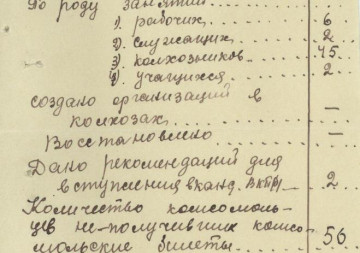 По роду занятий
1) рабочих 6
2) служащих 2
3) колхозников 45
4) учащихся 2
создано организаций в
колхозах —
Восстановлено —
Дано рекомендаций для
вступления в канд. ВКП(б) 2
Количество комсомоль-
цев не получивших комсо-
мольские билеты 56